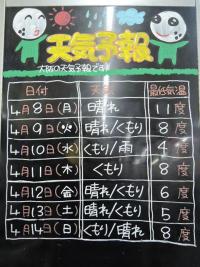 天気予報
大阪の天気予報です
日付 天気 最低気温
4月8日(月) 晴れ 11度
4月9日(火) 晴れ/くもり 8度
4月10日(水) くもり/雨 4度
4月11日(木) くもり 8度
4月12日(金) 晴れ/くもり 6度
4月13日(土) 晴れ/くもり 5度
4月14日(日) くもり/晴れ 8度